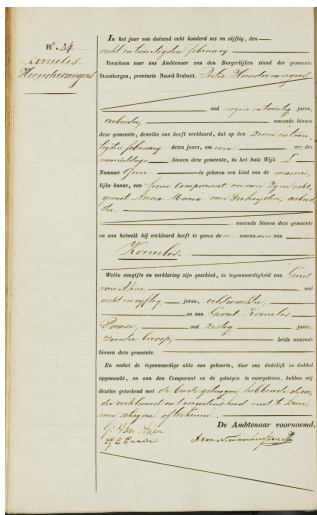 N°. 34
Kornelis
Hoendervangers
In het jaar een duizend acht honderd zes en vijftig, den
acht en twintigsten februarij
Verscheen voor ons Ambtenaar van den Burgerlijken stand der gemeente
Steenbergen, provincie Noord-Brabant, Pieter Hoendervangers
oud negen en twintig jaren,
arbeider, wonende binnen
deze gemeente, dewelke ons heeft verklaard, dat op den zeven en twin-
tigsten februarij dezes jaars, om een ure des
namiddags binnen deze gemeente, in het huis Wijk L
Nummer is geboren een kind van de manne-
lijke kunne, van hem Comparant en van zijne echt-
genoot Anna Maria van arbeid-
ster, wonende binnen deze gemeente
en aan hetwelk hij verklaard heeft te geven den voornaam van
Kornelis
Welke aangifte en verklaring zijn geschied, in tegenwoordigheid van Gerrit
van Aken, oud
acht en vijftig jaren, veldwachter,
en van Gerrit Kornelis
oud zestig jaren,
zonder beroep, beide wonende
binnen deze gemeente.
En nadat de tegenwoordige akte van geboorte, door ons dadelijk in dubbel
opgemaakt, en aan den Comparant en de getuigen is voorgelezen, hebben wij
dezelve geteekend met de beide getuigen hebbende de
verklaard
De Ambtenaar voornoemd,
G. van Aken